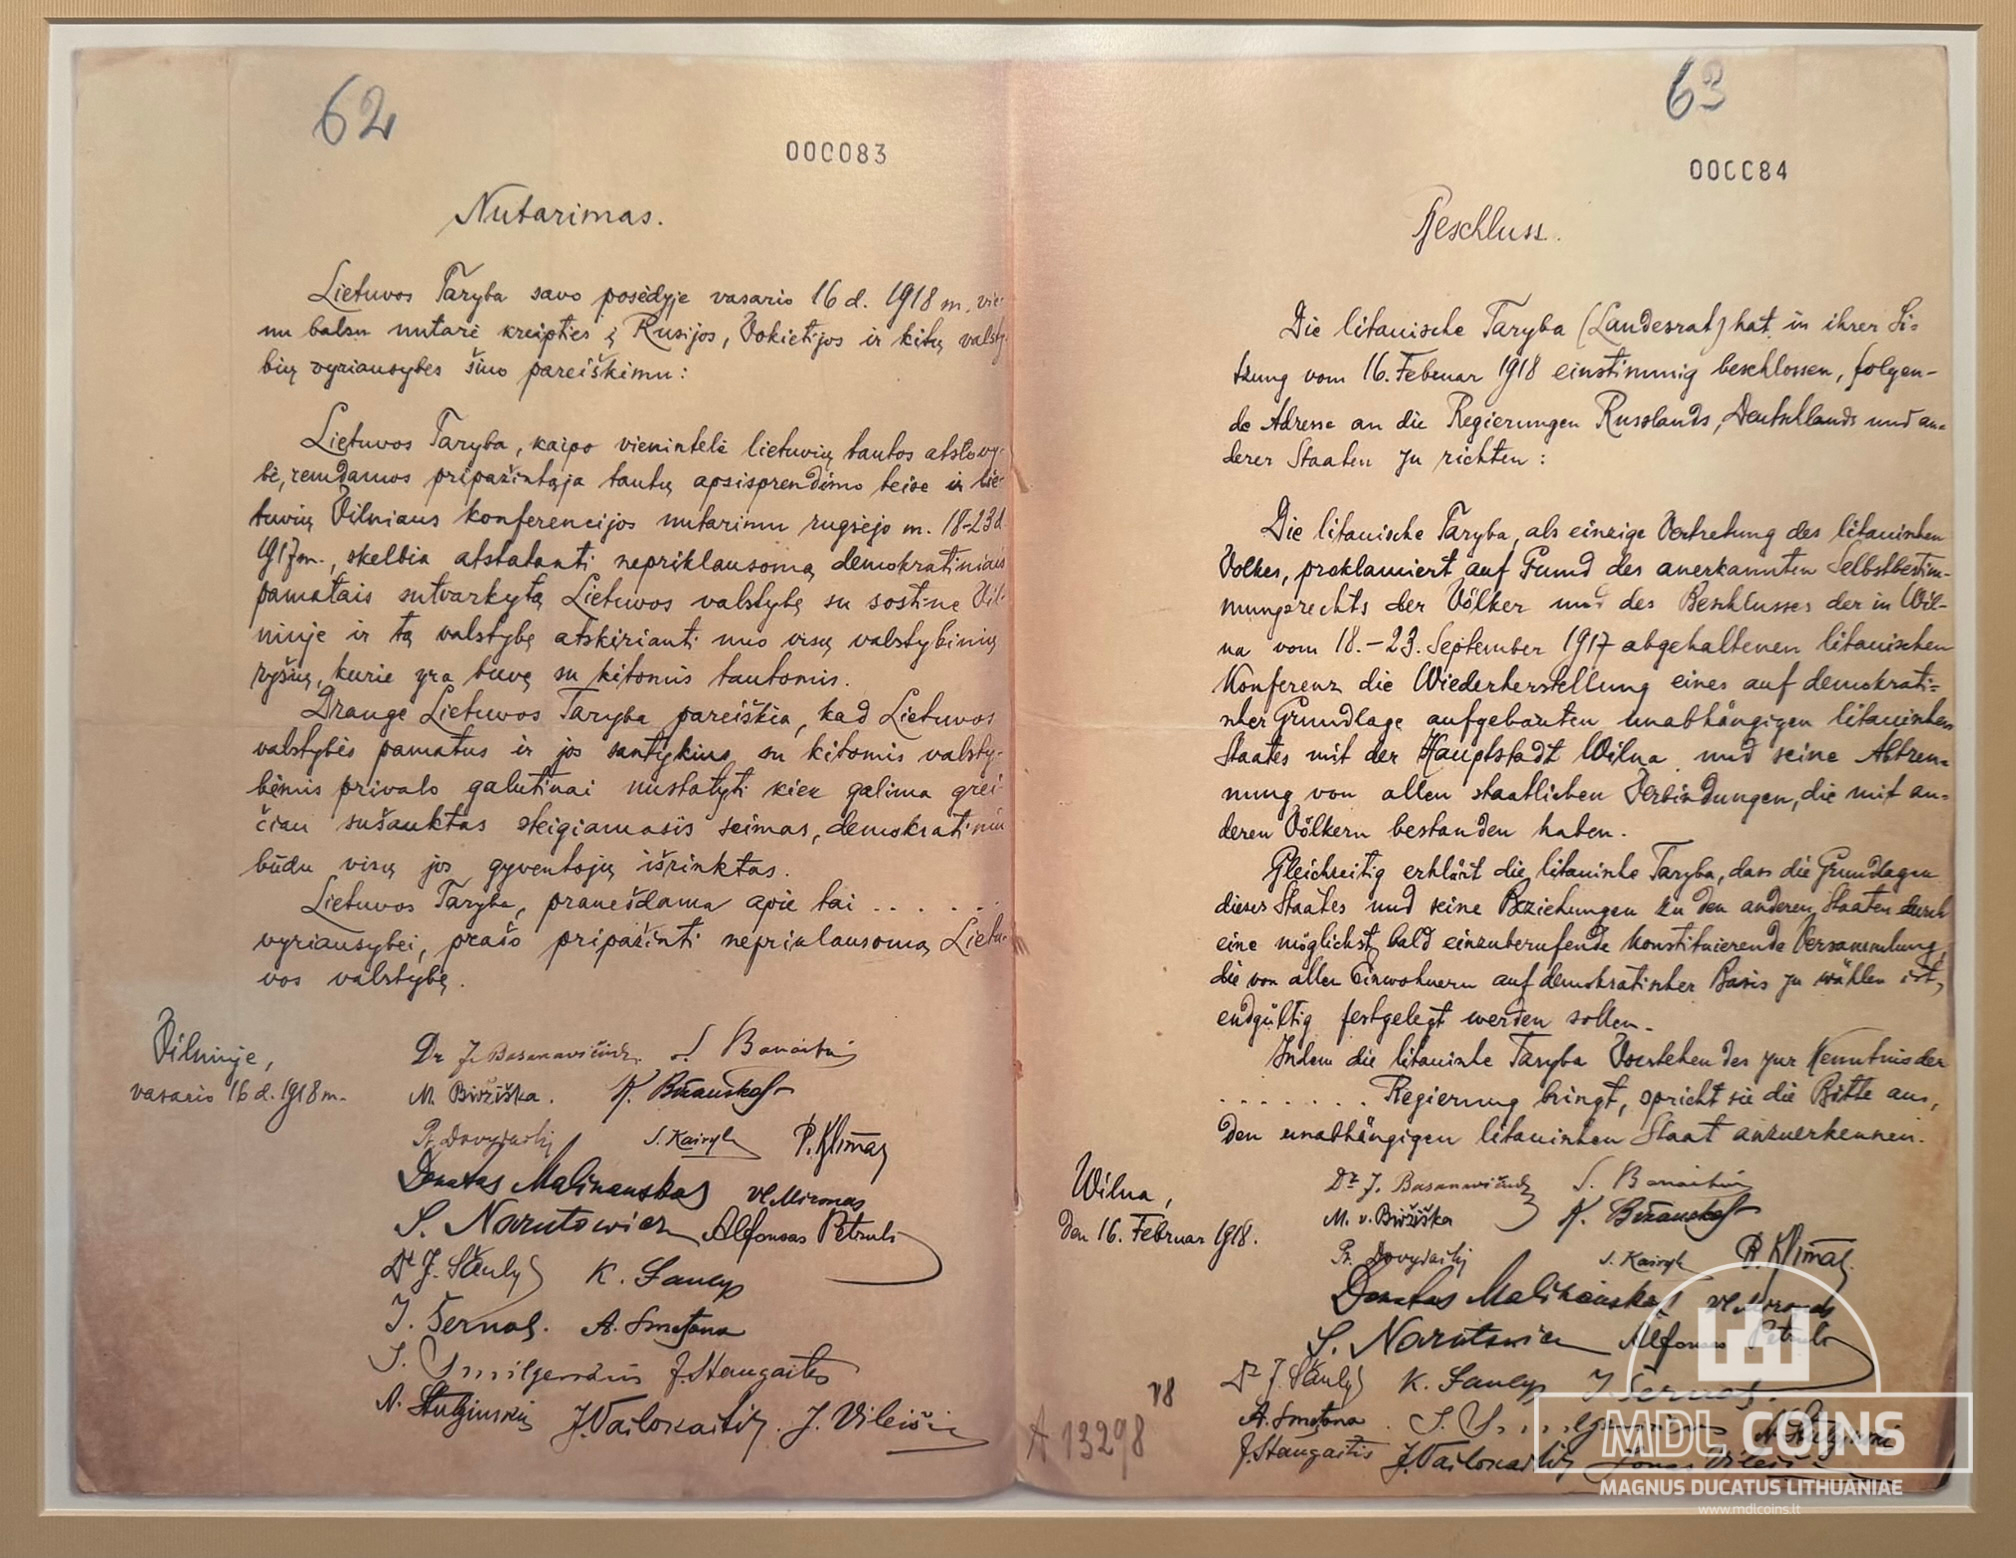 62
000083
Nutarimas.
Lietuvos Taryba savo posėdyje vasario 16 d. 1918 m. vie-
nu balsu nutarė kreipties į Rusijos, Vokietijos ir kitų valsty-
bių vyriausybes šiuo pareiškimu:
Lietuvos Taryba, kaipo vienintelė lietuvių tautos atstovy-
bė, remdamos pripažintąja tautų apsisprendimo teise ir lie-
tuvių Vilniaus konferencijos nutarimu rugsėjo m. 18-23 d.
1917 m., skelbia atstatanti nepriklausomą demokratiniais
pamatais sutvarkytą Lietuvos valstybę su sostine Vil-
niuje ir tą valstybę atskirianti nuo visų valstybinių
ryšių, kurie yra buvę su kitomis tautomis.
Drauge Lietuvos Taryba pareiškia, kad Lietuvos
valstybės pamatus ir jos santykius su kitomis valsty-
bėmis privalo galutinai nustatyti kiek galima grei-
čiau sušauktas steigiamasis seimas, demokratiniu
būdu visų jos gyventojų išrinktas.
Lietuvos Taryba, pranešdama apie tai . . . . . .
vyriausybei, prašo pripažinti nepriklausomą Lietu-
vos valstybę.
Vilniuje,
vasario 16 d. 1918 m.
Dr J. Basanavičius. S. Banaitis
M. Biržiška. K. Bizauskas
Pr. Dovydaitis S. Kairys P. Klimas
Donatas Malinauskas Vl. Mironas
S. Narutowicz Alfonsas Petrulis
Dr J. Šaulys K. Šaulys
J. Šernas. A. Smetona
J. Smilgevičius J. Staugaitis
A. Stulginskis J. Vailokaitis. J. Vileišis
63
000084
Beschluss.
Die litauische Taryba (Landesrat) hat in ihrer Si-
tzung vom 16. Februar 1918 einstimmig beschlossen, folgen-
de Adresse an die Regierungen Russlands, Deutschlands und an-
derer Staaten zu richten:
Die litauische Taryba, als einzige Vertretung des litauischen
Volkes, proklamiert auf Grund des anerkannten Selbstbestim-
mungsrechts der Völker und des Beschlusses der in Wil-
na vom 18.-23. September 1917 abgehaltenen litauischen
Konferenz die Wiederherstellung eines auf demokrati-
scher Grundlage aufgebauten unabhängigen litauischen
Staates mit der Hauptstadt Wilna und seine Abtren-
nung von allen staatlichen Verbindungen, die mit an-
deren Völkern bestanden haben.
Gleichzeitig erklärt die litauische Taryba, dass die Grundlagen
dieses Staates und seine Beziehungen zu den anderen Staaten durch
eine möglichst bald einzuberufende konstituierende Versammlung,
die von allen Einwohnern auf demokratischer Basis zu wählen ist,
endgültig festgelegt werden sollen.
Indem die litauische Taryba Vorstehendes zur Kenntnis der
. . . . . . . Regierung bringt, spricht sie die Bitte aus,
den unabhängigen litauischen Staat anzuerkennen.
Wilna,
den 16. Februar 1918.
Dr. J. Basanavičius S. Banaitis
M. v. Biržiška K. Bizauskas
Pr. Dovydaitis S. Kairys P. Klimas
Donatas Malinauskas Vl. Mironas
S. Narutowicz Alfonsas Petrulis
Dr J. Šaulys K. Šaulys J. Šernas.
A. Smetona J. Smilgevičius A. Stulginskis
J. Staugaitis J. Vailokaitis Jonas Vileišis
A 13298 18
MDL COINS
MAGNUS DUCATUS LITHUANIAE
www.mdlcoins.lt